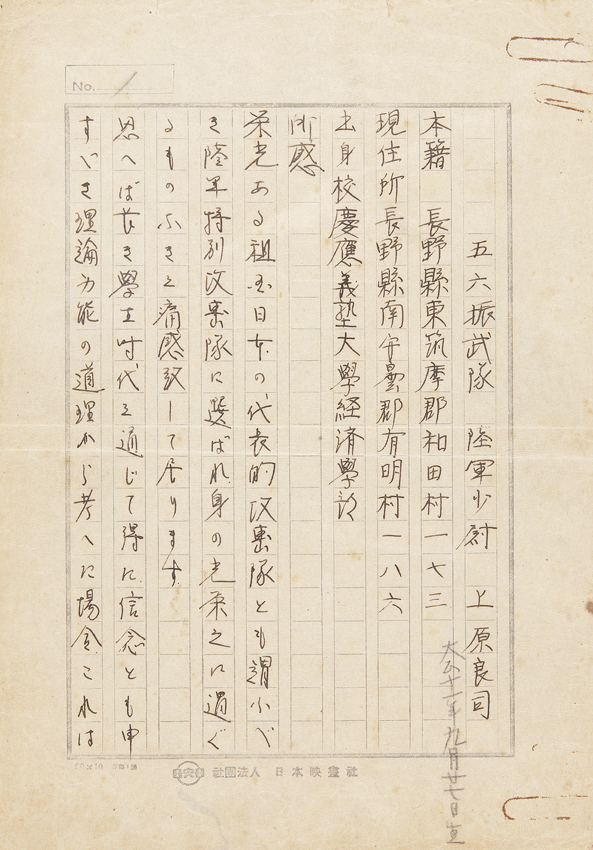 No. 1
五六振武隊 陸軍少尉 上原良司
本籍 長野縣東筑摩郡和田村一七三
大正十一年九月廿七日生
現住所 長野縣南安曇郡有明村一八六
出身校 慶應義塾大學経済學部
所感
栄光ある祖国日本の代表的攻撃隊とも謂ふべ
き陸軍特別攻撃隊に選ばれ身の光栄之に過ぐ
るものなきと痛感致して居ります
思へば長き學生時代を通じて得た信念とも申
すべき理論万能の道理から考へた場合これは
社團法人 日本映畫社